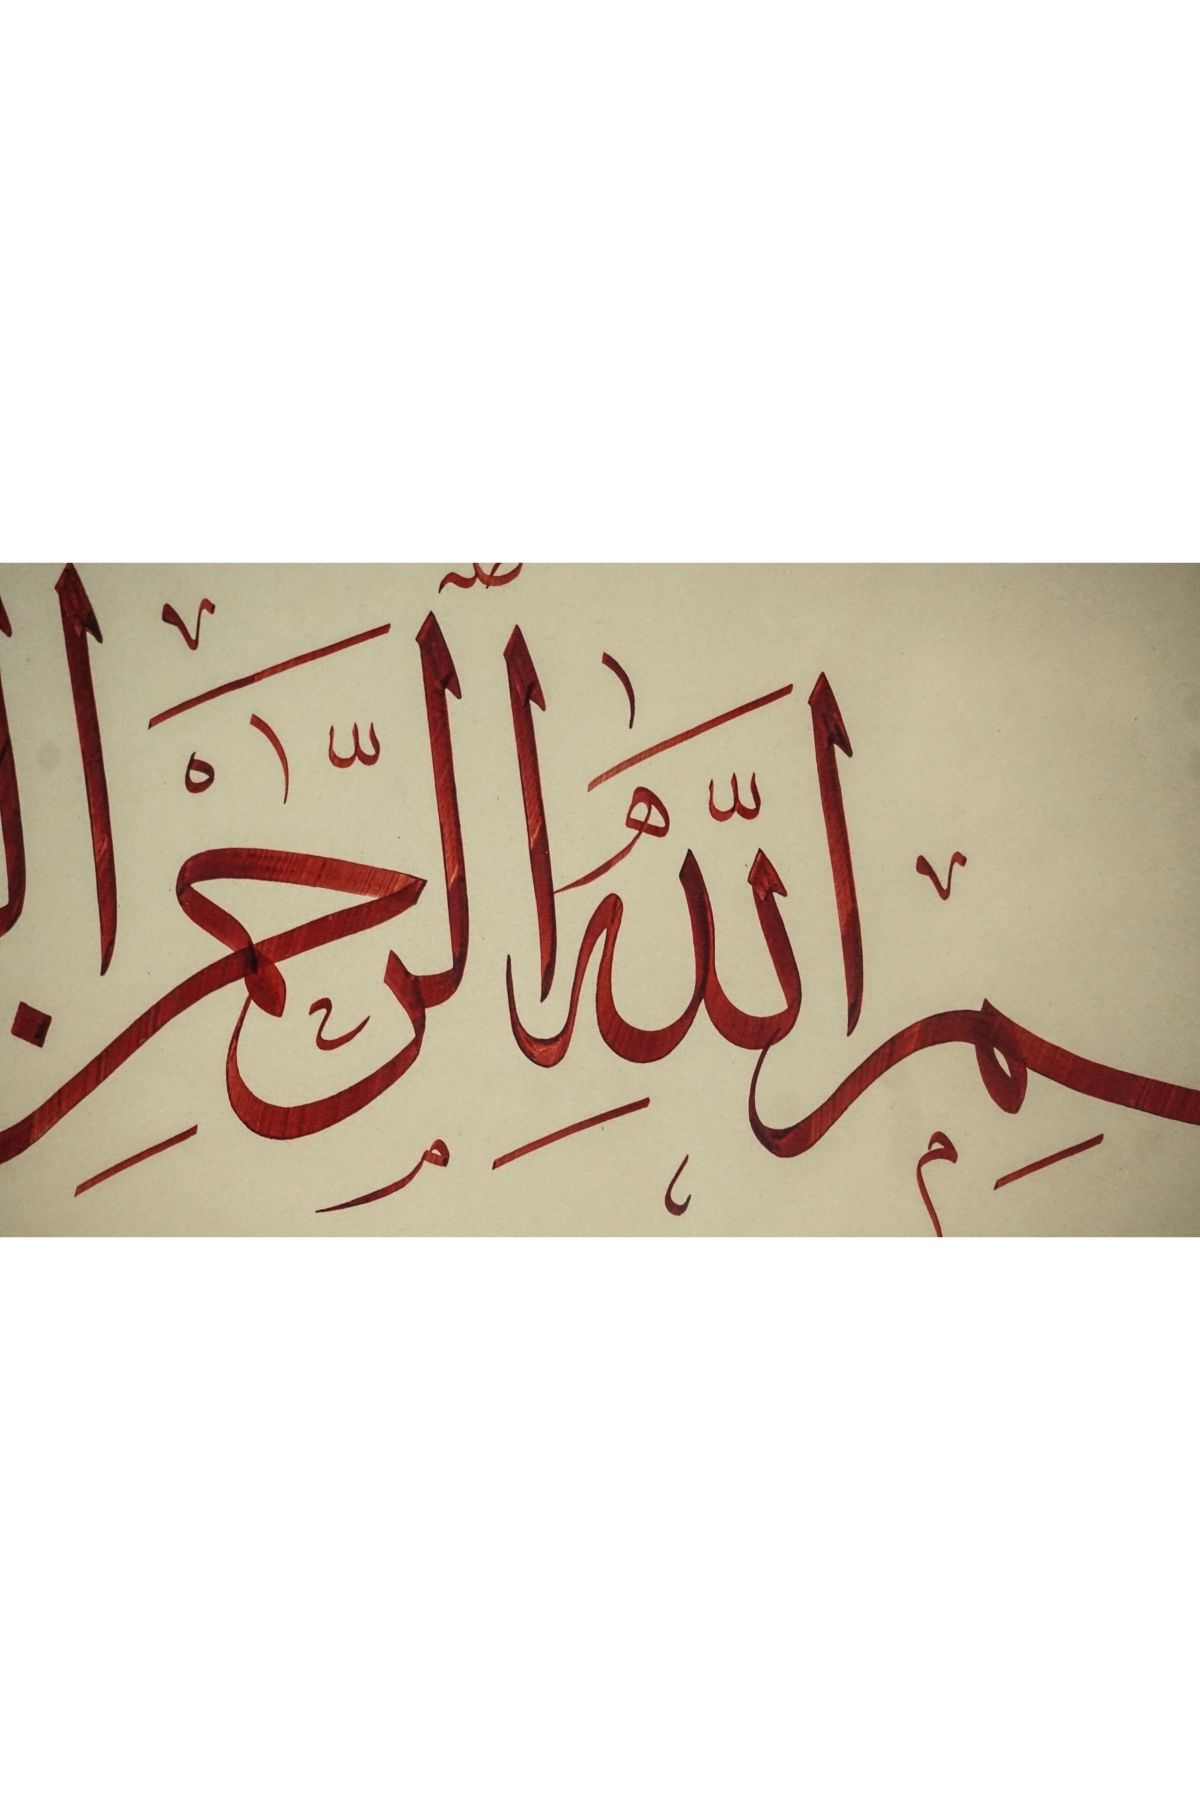 ـمِ اللّٰهِ الرَّحْمٰنِ ال